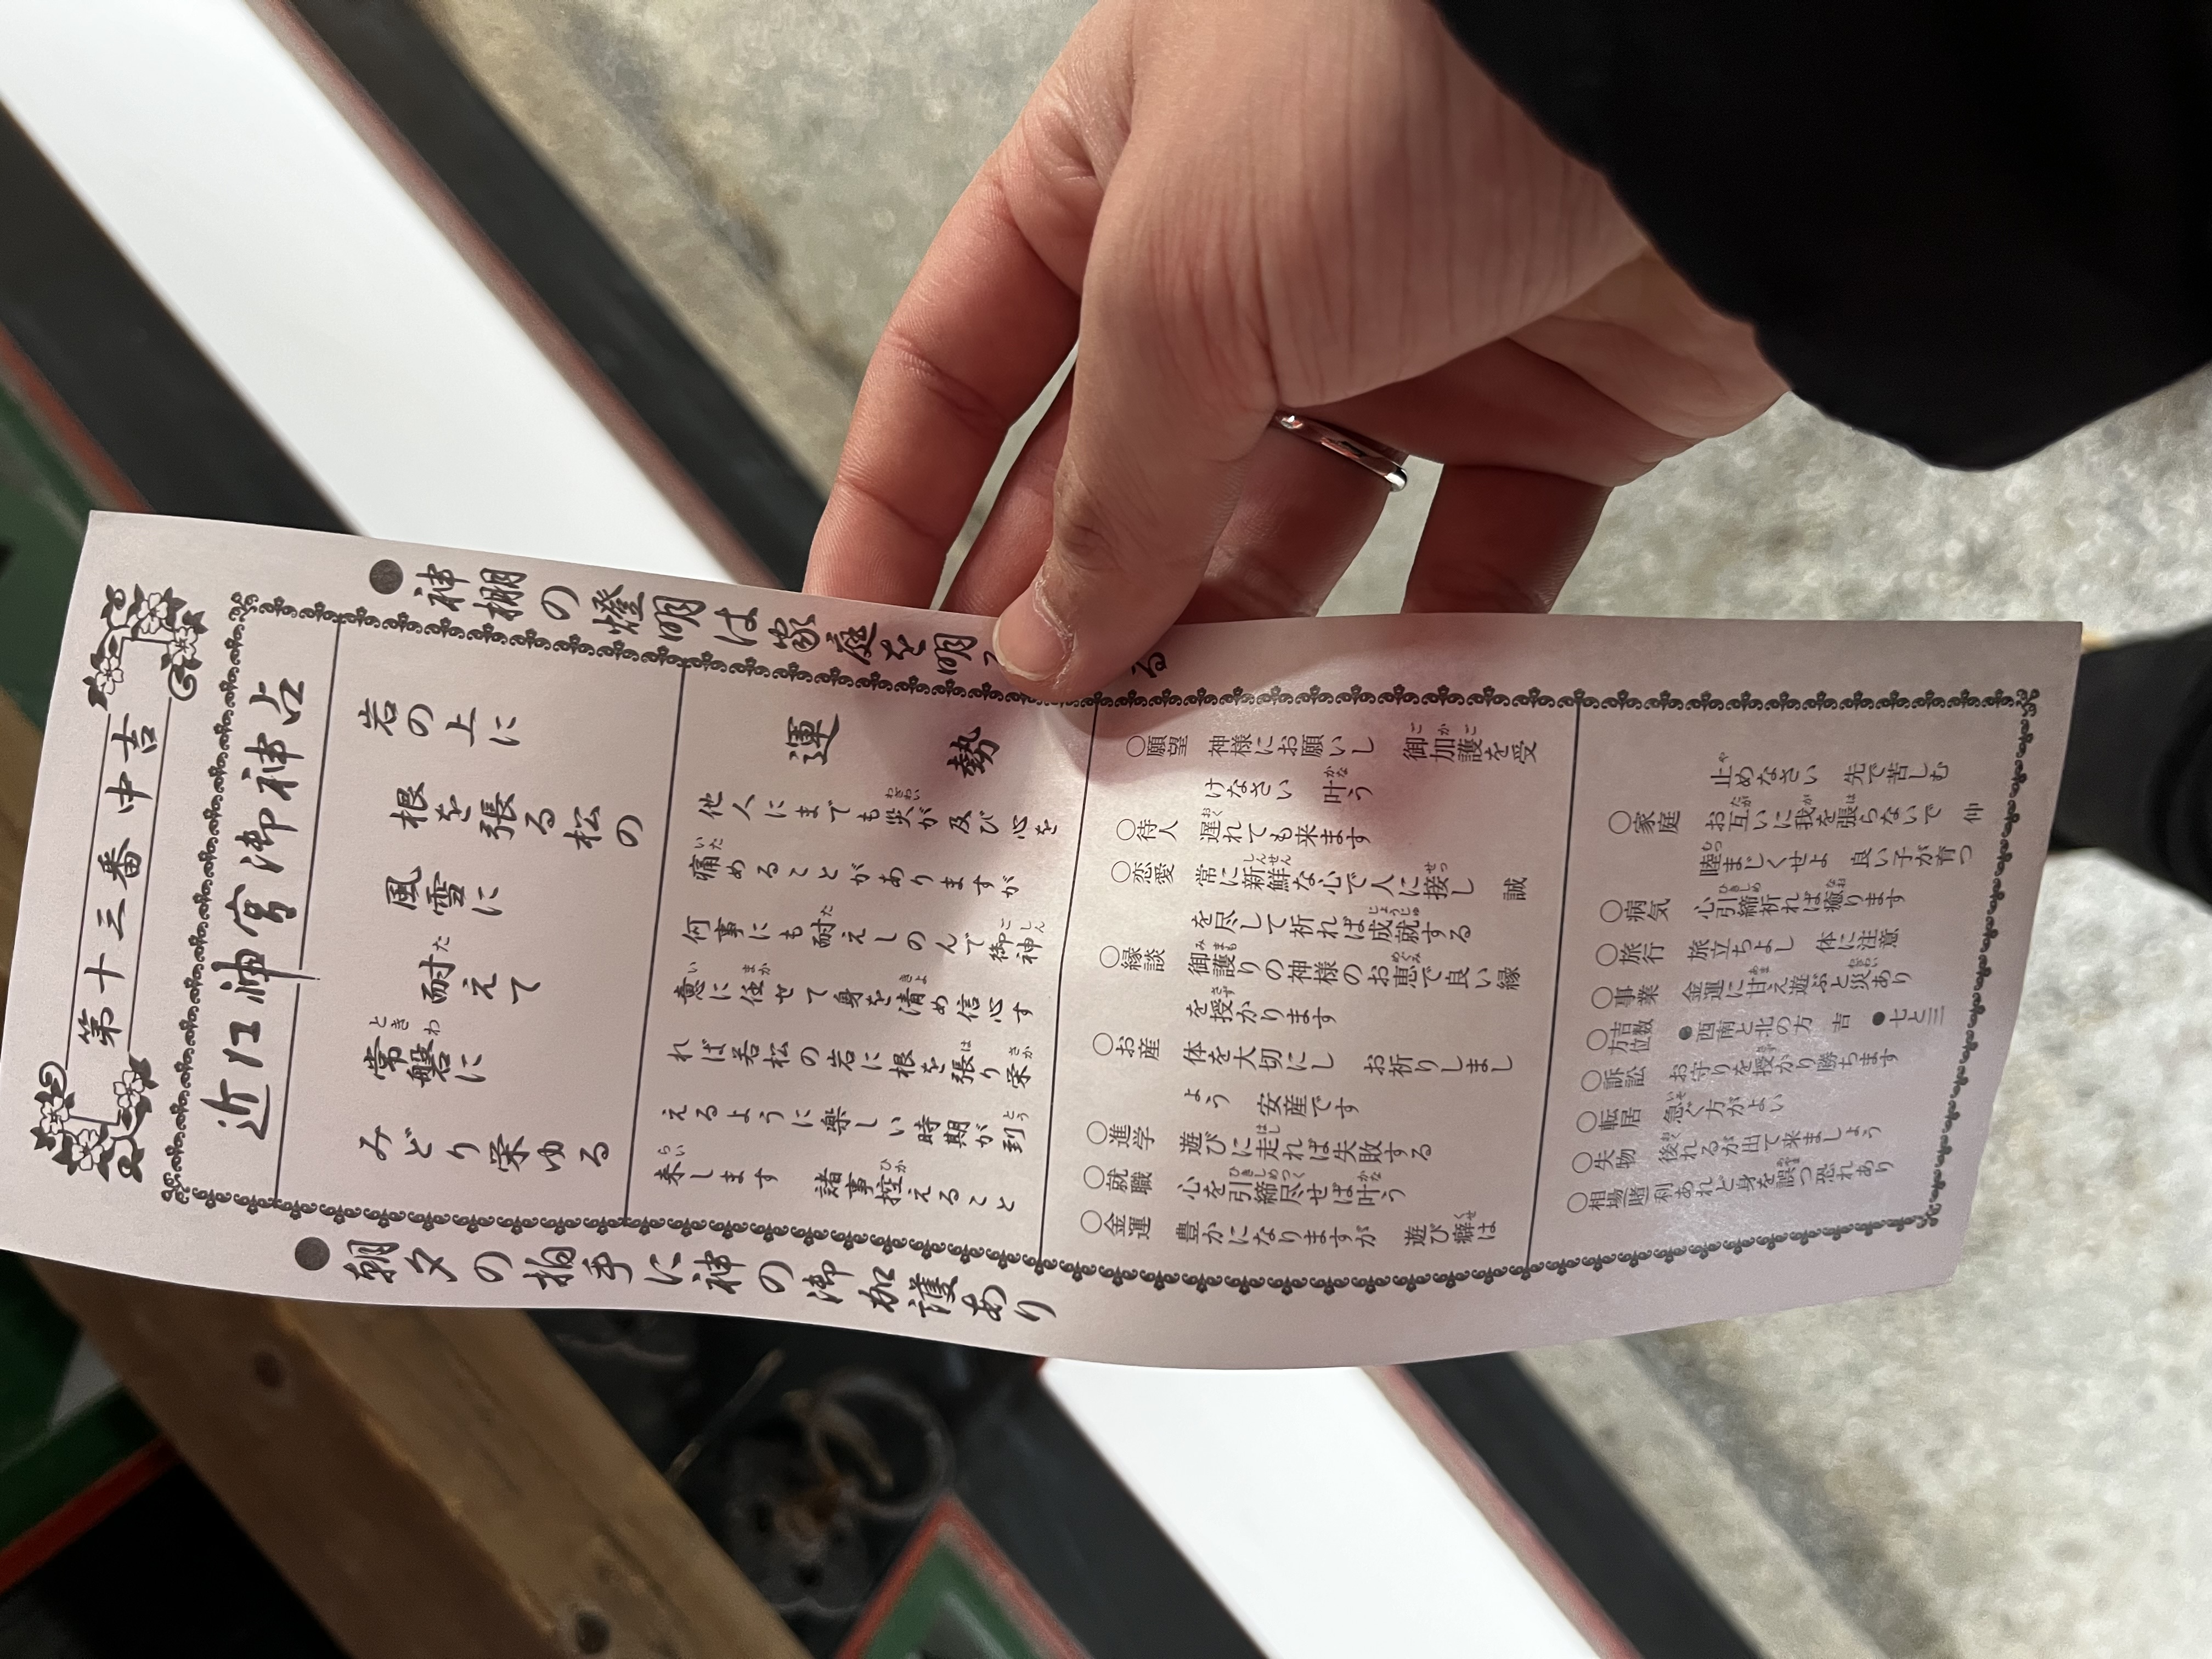 第十三番 中吉
近江神宮御神占
●神棚の燈明は家庭を明 る
岩の上に
根を張る松の
風雪に
耐えて
常磐に
みどり栄ゆる
運勢
他人にまでも災が及び心を
痛めることがありますが
何事にも耐えしのんで御神
意に任せて身を清め信心す
れば若松の岩に根を張り栄
えるように楽しい時期が到
来します 諸事控えること
○願望 神様にお願いし 御加護を受
けなさい 叶う
○待人 遅れても来ます
○恋愛 常に新鮮な心で人に接し 誠
を尽して祈れば成就する
○縁談 御護りの神様のお恵で良い縁
を授かります
○お産 体を大切にし お祈りしまし
よう 安産です
○進学 遊びに走れば失敗する
○就職 心を引締尽せば叶う
○金運 豊かになりますが 遊び癖は
止めなさい 先で苦しむ
○家庭 お互いに我を張らないで 仲
睦まじくせよ 良い子が育つ
○病気 心引締祈れば癒ります
○旅行 旅立ちよし 体に注意
○事業 金運に甘え遊ぶと災あり
○吉数方位 ●西南と北の方 吉 ●七と三
○訴訟 お守りを授かり勝ちます
○転居 急ぐ方がよい
○失物 後れるが出て来ましよう
○相場賭 利あれど身を誤つ恐れあり
●朝夕の拍手に神の御加護あり